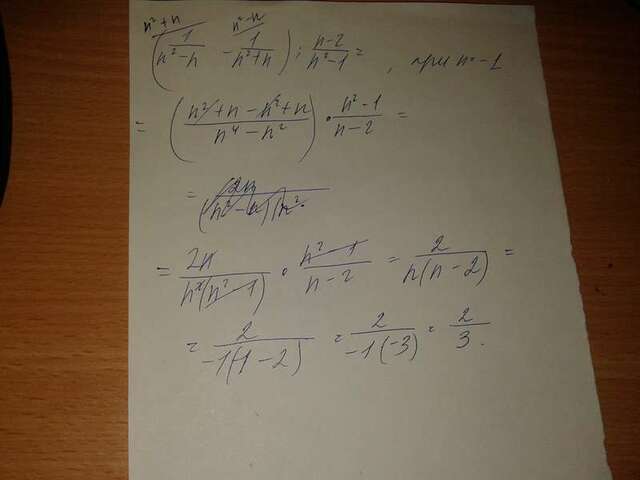 n²+n n²-n
(1/(n²-n) - 1/(n²+n)) : (n-2)/(n²-1) = , при n=-1
= ((n²+n-n²+n)/(n⁴-n²)) · (n²-1)/(n-2) =
= 2n/(n²(n²-1)) · (n²-1)/(n-2) = 2/(n(n-2)) =
= 2/(-1(-1-2)) = 2/(-1(-3)) = 2/3.